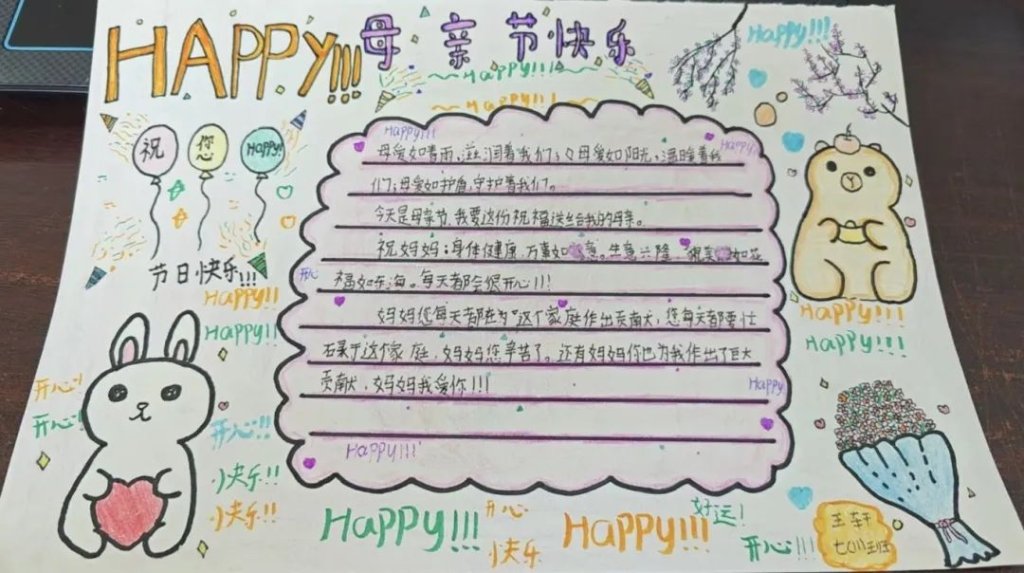 HAPPY!!! 母亲节快乐
Happy!!!
Happy!!!
Happy!!!
祝 您 Happy!
节日快乐!!!
Happy!!!
Happy
母爱如春雨，滋润着我们；母爱如阳光，温暖着我
们；母爱如护盾，守护着我们。
今天是母亲节，我要这份祝福送给我的母亲。
祝妈妈：身体健康，万事如意。生意兴隆，如花
开心
福如东海。每天都会很开心!!!
妈妈您每天都在为"这个家庭作出贡献，您每天都要忙
于这个家庭，妈妈您辛苦了。还有妈妈你也为我作出了巨大
贡献，妈妈我爱你!!!
Happy
Happy!!!
Happy!!
Happy!!
开心!
开心!
开心!!
快乐!!
快乐!!
Happy!!!
Happy!!!
Happy!!!
开心
快乐
Happy!!!
好运!
开心!!!
王轩